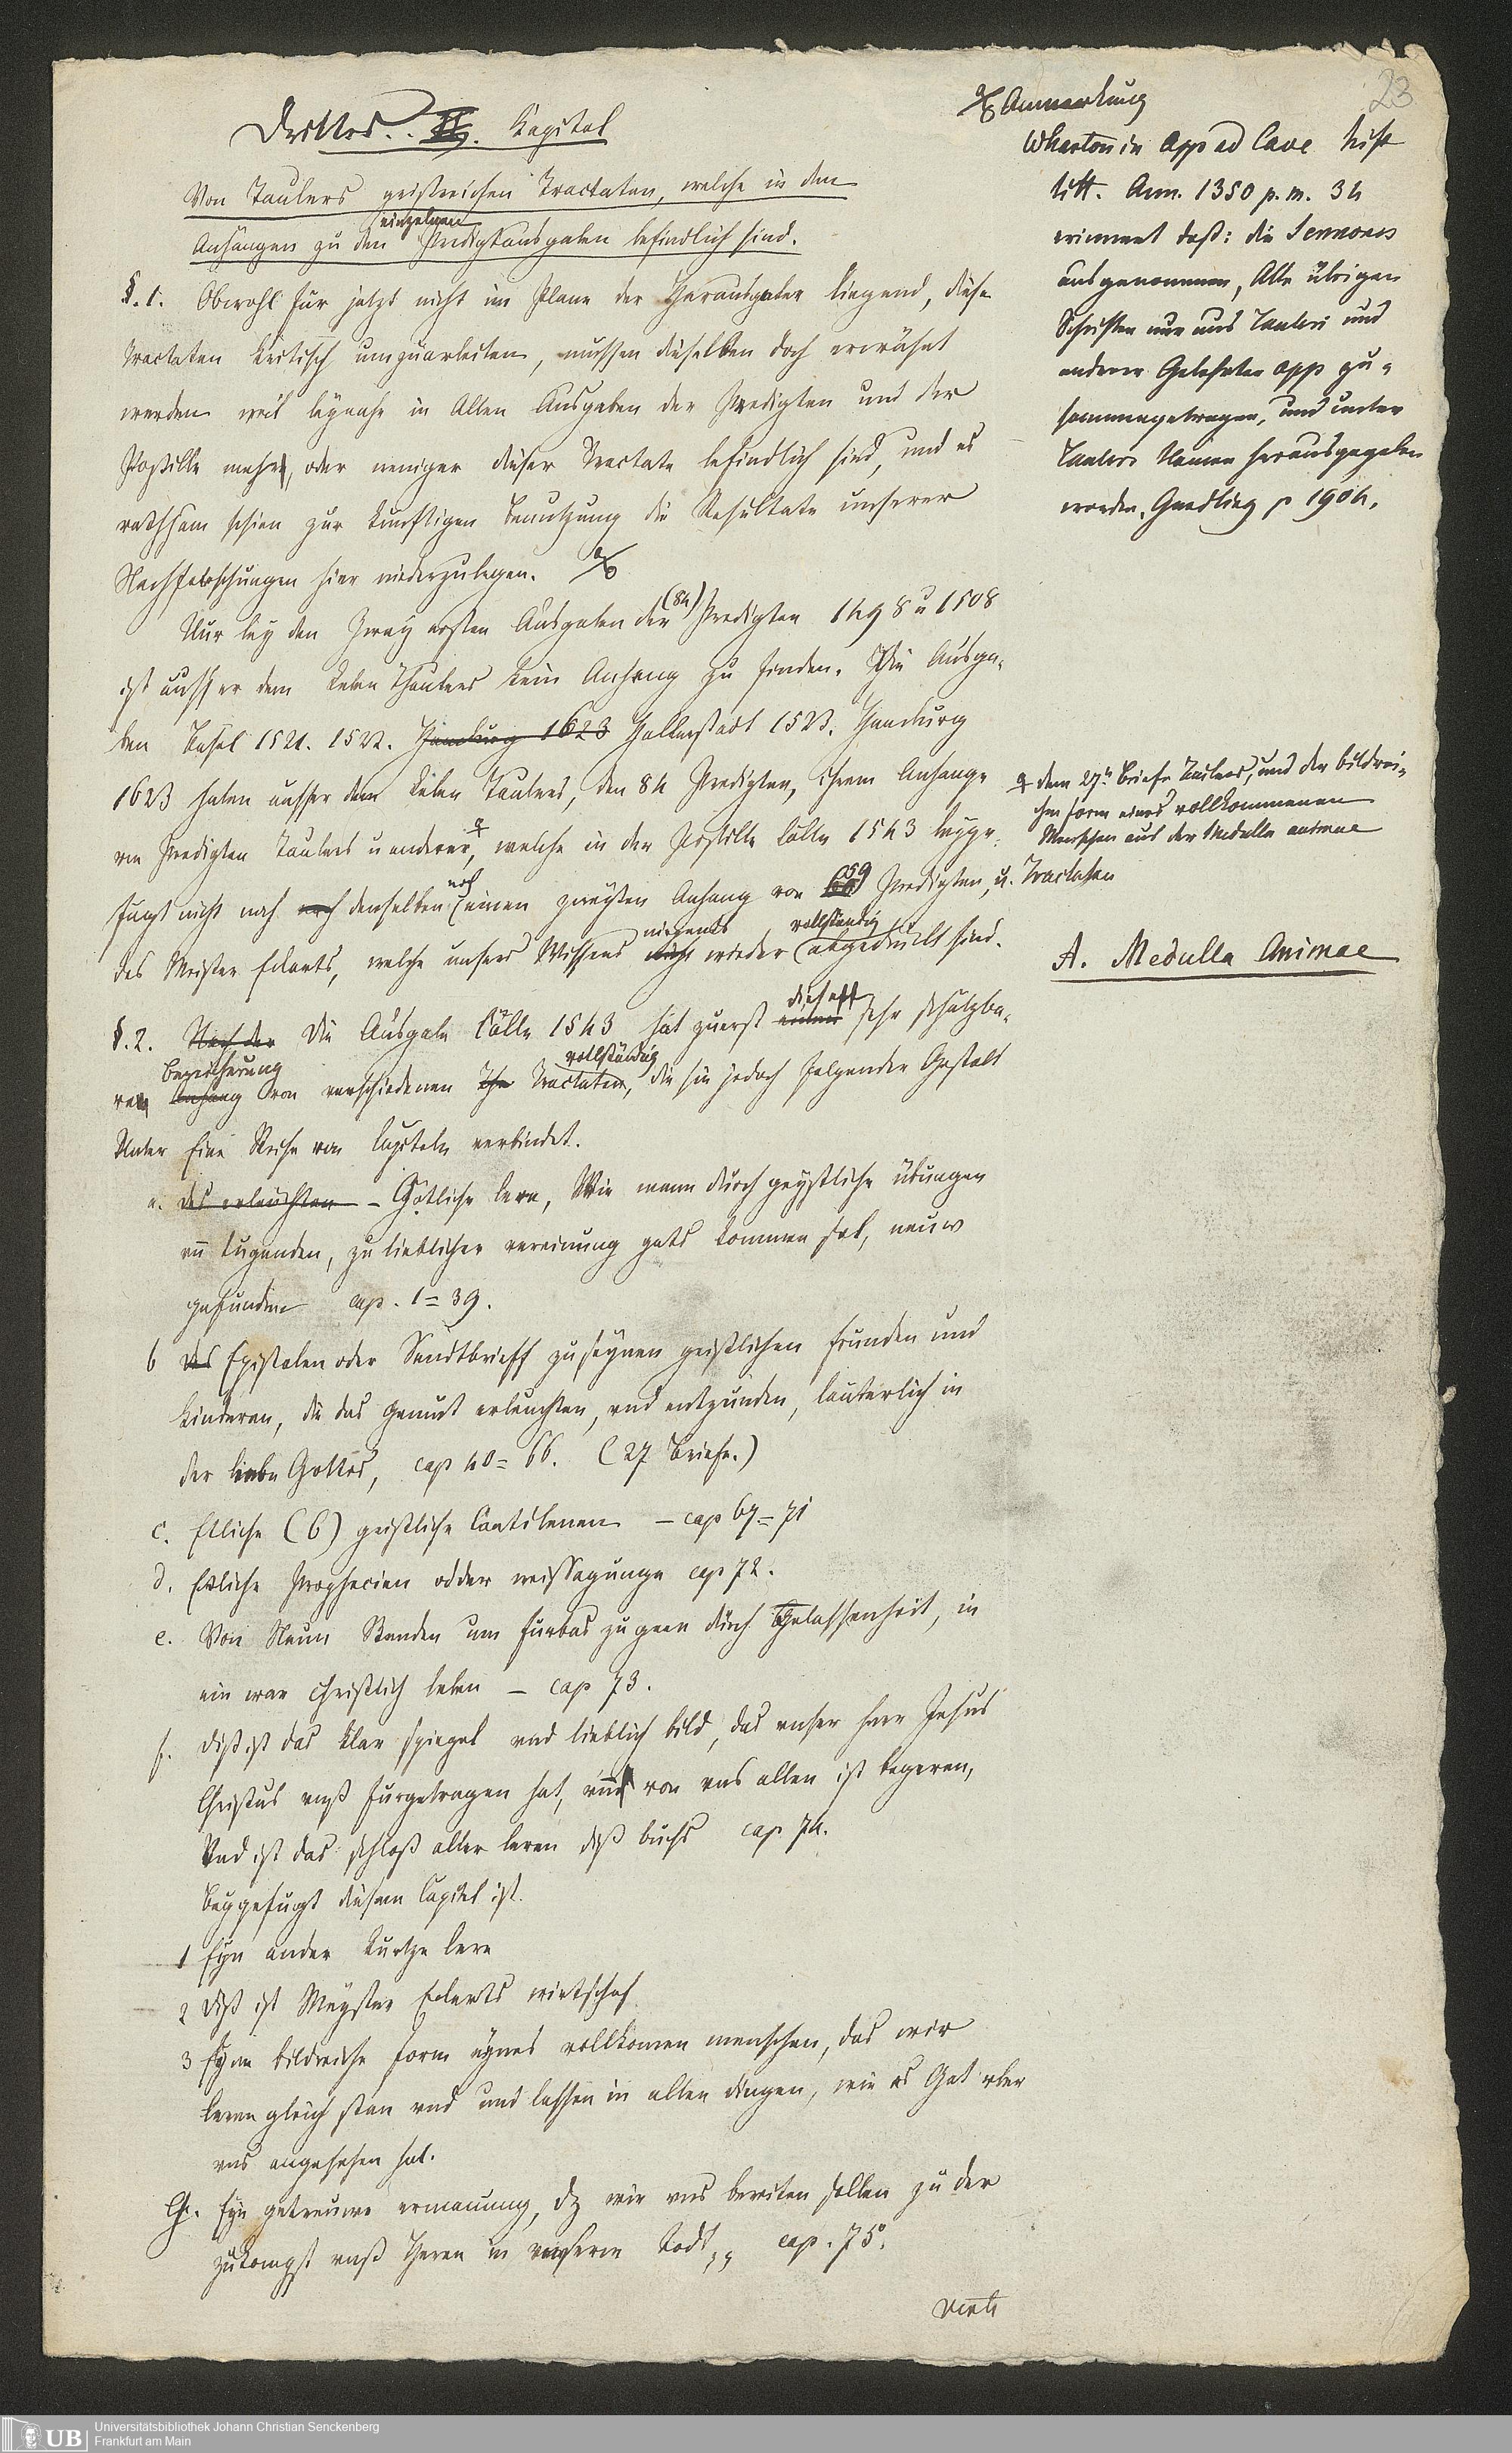 23
Drittes. II. Kapitel
Von Taulers geistreichen Tractaten, welche in den
einzelnen
Anhängen zu den Predigtausgaben befindlich sind.
§. 1. Obwohl für jetzt nicht im Plane der Herausgeber liegend, diese
Tractaten kritisch umzuarbeiten, mussen dieselben doch erwähnt
werden weil beynahe in Allen Ausgaben der Predigten und der
Postille mehr, oder weniger dieser Tractate befindlich sind, und es
rathsam schien zur künftigen Benutzung die Resultate unserer
Nachforschungen hier niederzulegen.
Nur bey den Zwey ersten Ausgaben der (84) Predigten 1498 u 1508
ist ausser dem Leben Thaulers kein Anhang zu finden. Die Ausga-
ben Basel 1521. 1522. Hamburg 1623 Halberstadt 1523. Hamburg
1623 haben ausser dem Leben Taulers, den 84 Predigten, ihrem Anhange
von Predigten Taulers u anderer, welche in der Postille Cölln 1543 beyge-
fügt nicht noch nach denselben noch einen zweyten Anhang von 60 59 Predigten, u. Tractaten
des Meister Eckarts, welche unsers Wissens nicht nirgends wieder vollständig abgedrückt sind.
§. 2. Nach der Die Ausgabe Cölln 1543 hat zuerst einen diese sehr schätzba-
re Anhang Bereicherung von verschiedenen The Tractaten, vollständig die sie jedoch folgender Gestalt
Unter Eine Reihe von Capiteln verbindet.
a. des erleuchten – Gotliche lere, Wie mann durch geystliche übungen
vn̄ tugenden, zu lieblicher vereinung gots kommen sol, neuw
gefunden cap. 1=39.
b des Epistolen oder Sendtbrieff zu seynen geistlichen frunden und
kinderen, die das gemut erleuchten, und entzunden, lauterlich in
der liebe Gottes, cap 40=66. (27 Briefe.)
c. Etliche (6) geistliche Cantilenen – cap 67=71
d. Etliche Prophecien odder weissagunge cap 72.
e. Von Neun Standen um furbas zu geen durch Gelassenheit, in
ein war christlich leben – cap 73.
f. Diß ist das klar spiegel und lieblich bild, das unser herr Jesus
Christus unß furgetragen hat, vnnd von uns allen ist begeren,
Und ist das schloß aller leren diß buchs cap 74.
Beygefügt diesem Capitel ist.
1 Eyn ander kurtze lere
2 Diß ist Meyster Eckarts wirtschaf
3 Eyne bildreiche form eynes vollkomen menschen, das wir
leren gleich stan und und lassen in allen dingen, wie es Got uber
uns angesehen hat.
G. Eyn getreuwe ermanung, dz wir uns bereiten sollen zu der
zukompst unß Heren in unserm Todt,, cap. 75.
Anmerkung
Wharton in App ad Cave hist
litt. Ann. 1350 p. m. 34
erinnert daß: die Sermones
ausgenommen, Alle übrigen
Schriften nur aus Tauleri und
anderer Gelehrten app zu-
sammengetragen, und unter
Taulers Namen herausgegeben
worden. Gundling p 1904.
dem 27n Briefe Taulers, und der bildrei-
chen form eines vollkommenen
Menschen aus der Medulla animae
A. Medulla Animae
Universitätsbibliothek Johann Christian Senckenberg
Frankfurt am Main
UB